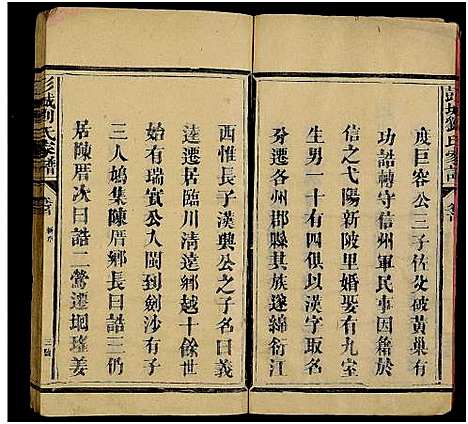 彭城劉氏家譜
度巨容公三子佐父破黃巢有
功誥轉守信州軍民事因籍於
信之弋陽新陂里婚娶有九室
生男一十有四俱以漢字取名
分遷各州郡縣其族遂綿衍江
西惟長子漢興公之子名曰義
逵遷居臨川清遠鄉越十餘世
始有瑞實公入閩到劍沙有子
三人鳩集陳厝鄉長曰誥三仍
居陳厝次曰誥二鶯遷垌瑤姜
彭城劉氏家譜